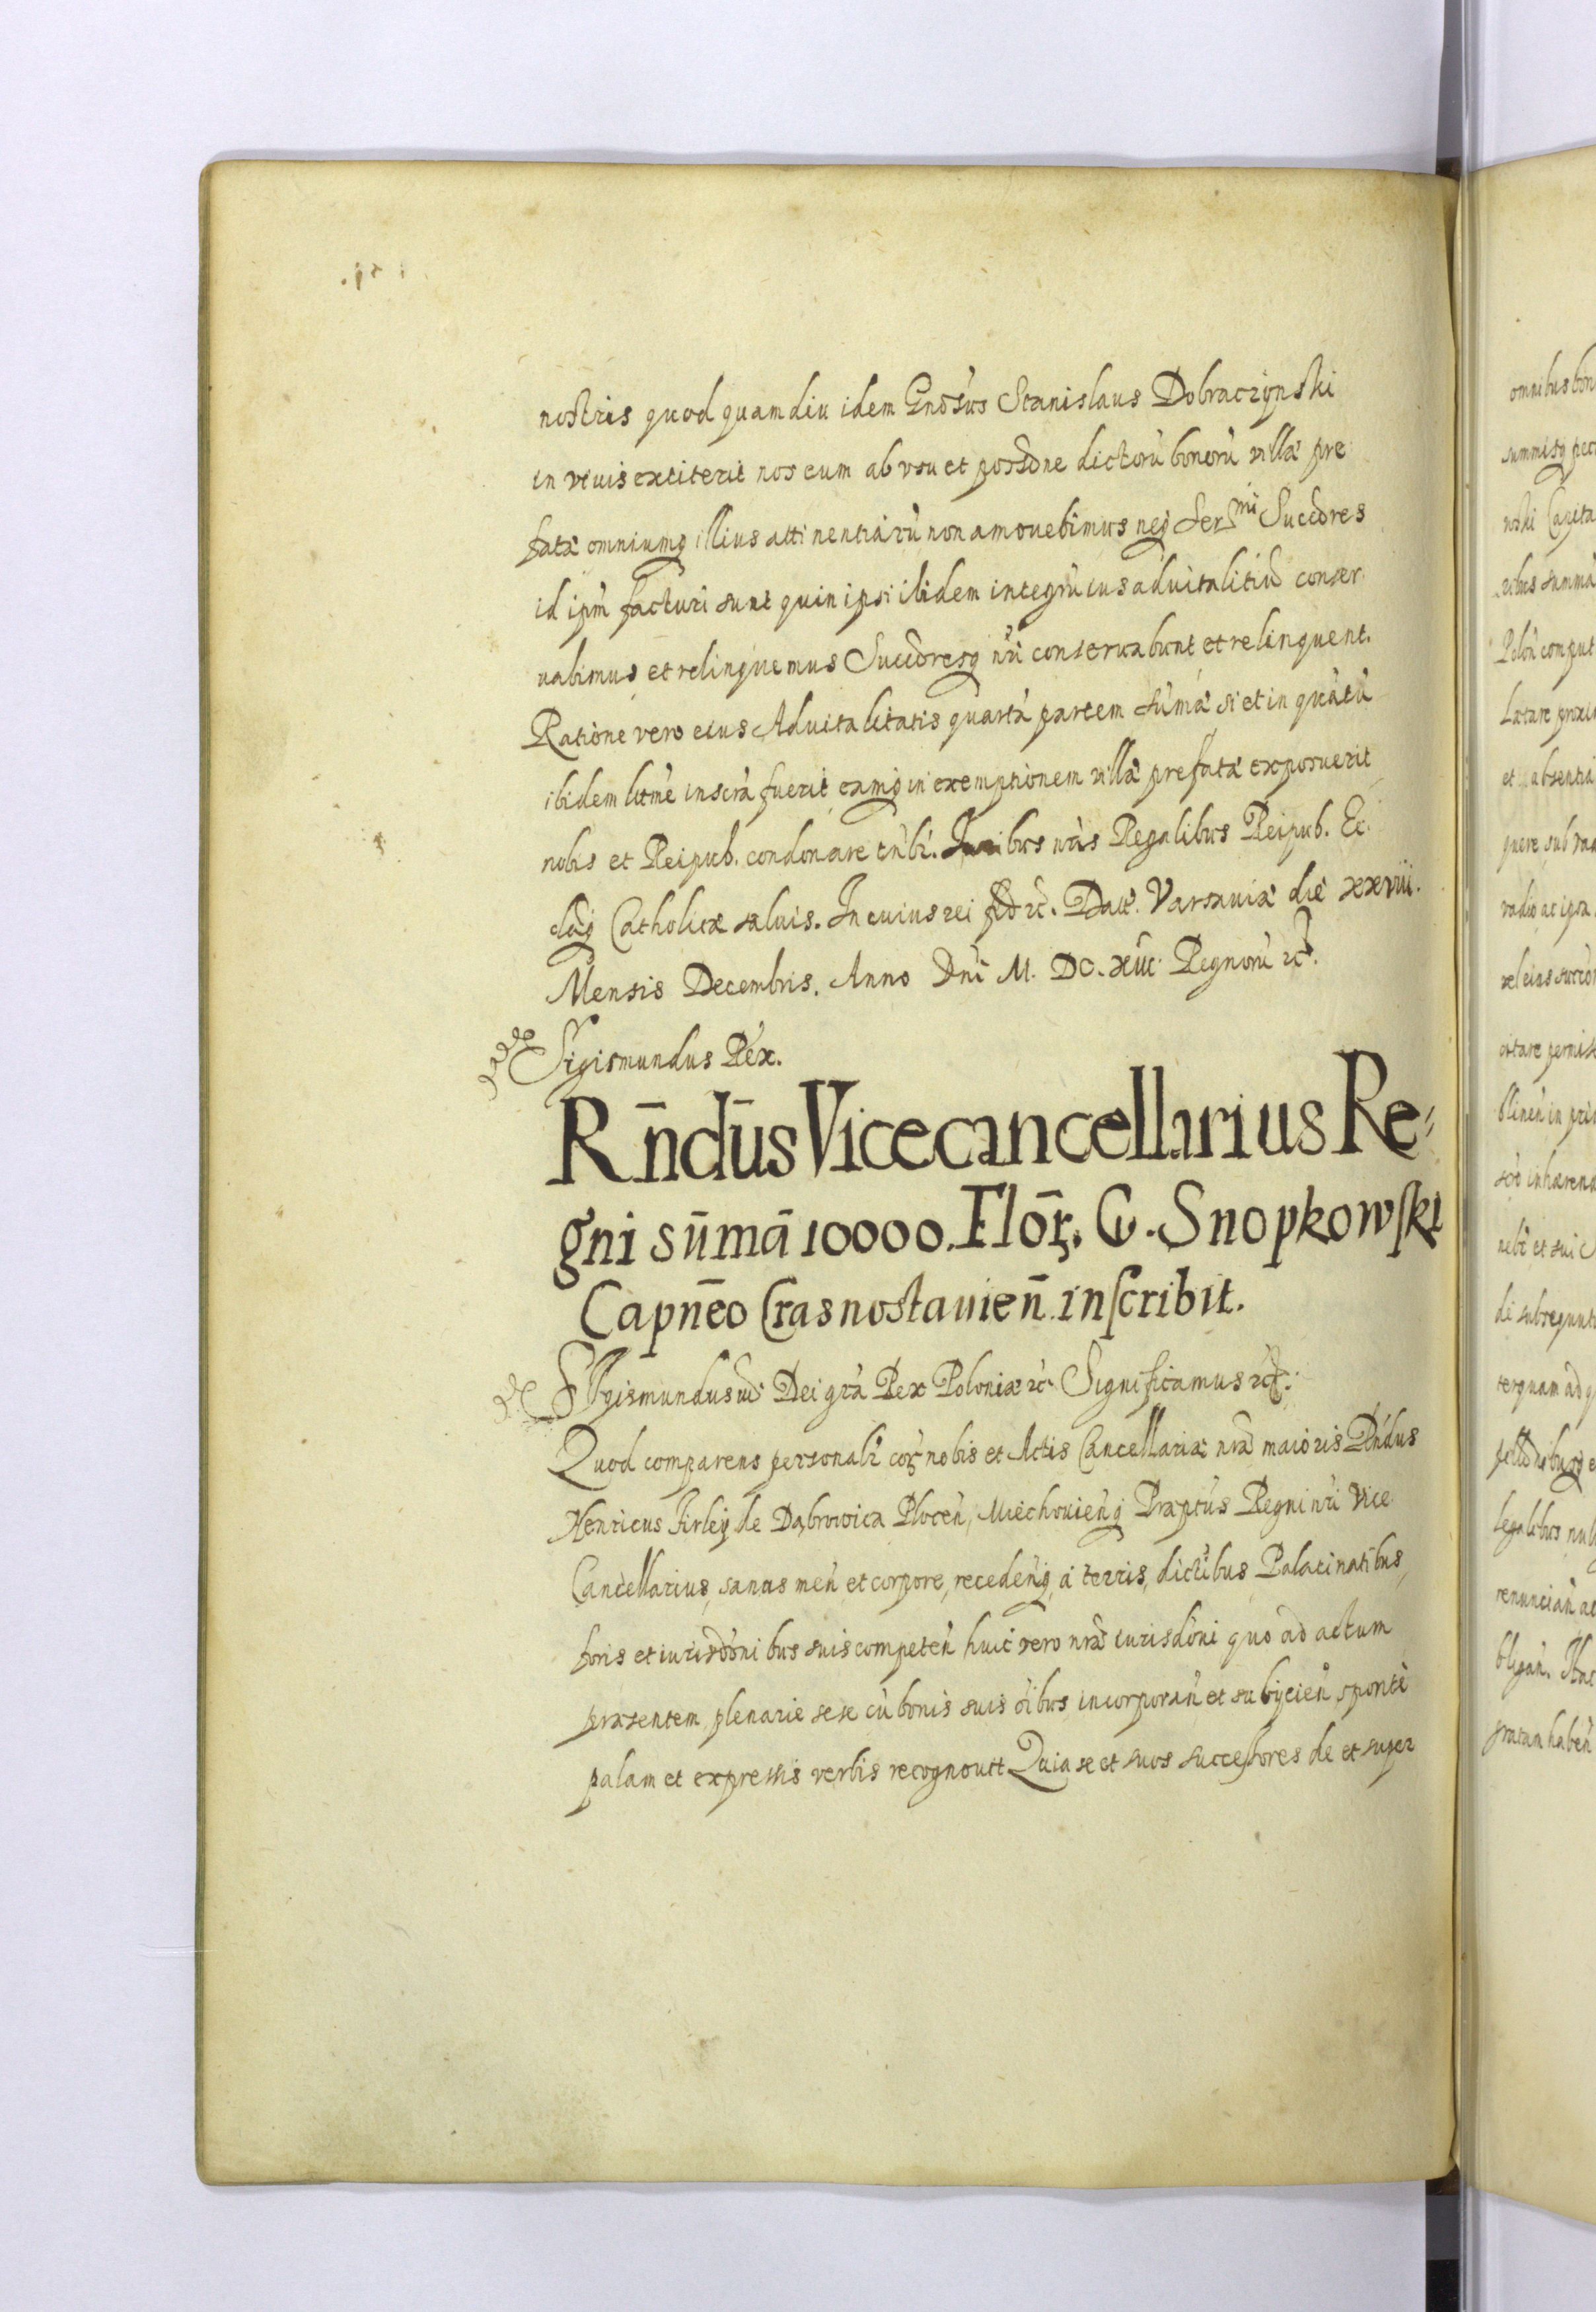 nostris quod quamdiu idem Gnōsus Stanislaus Dobraczynski
in vivis extiterit nos eum ab usu et possōne dictorū bonorū villæ pre
fatæ omniumq illius attinentiarū non amovebimus neq Ser^mi Succōres
id ipm̄ facturi sunt quin ipsi ibidem integrū ius advitalitiū conser
vabimus et relinquemus Succōresq nr̄i conservabunt et relinquent.
Ratione vero eius Advitalitatis quartā partem sūmæ si et in quātū
ibidem litme inscrā fuerit eamq in exemptionem villæ prefatæ exposuerit
nobis et Reipub. condonare tn̄bī. Iuribus nr̄is Regalibus Reipub. Ec
clāq Catholicæ salvis. In cuius rei fid ꝛc. Dat. Varsaviæ die xxviii.
Mensis Decembris. Anno Dnī M. DC. xiii. Regnorū ꝛc.
Sigismundus Rex.
Rn̄dūs Vicecancellarius Re-
gni sūmā 10000. Flōr. G. Snopkowski
Capnēo Crasnostavien̄ inscribit.
Sigismundus iii. Dei grā Rex Poloniæ ꝛc. Significamus ꝛc.
Quod comparens personalr̄ cor̄ nobis et Actis Cancellariæ nr̄æ maioris Rn̄dus
Henricus Firley de Dąbrowica Plocen̄, Miechovien̄q Præptūs Regni nr̄i Vice
Cancellarius, sanus men̄ et corpore, receden̄q, a terris, districtibus Palatinatibus,
foris et iurisdōnibus suis competen̄ huic vero nr̄æ iurisdōni quo ad actum
præsentem, plenarie sese cū bonis suis oībus incorporan̄ et subiicien̄ sponte
palam et expressis verbis recognovit Quia se et suos successores de et super